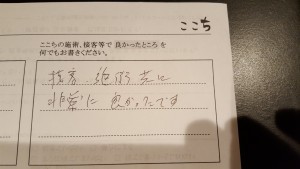 ここち
ここちの施術、接客等で良かったところを
何でもお書きください。
接客、施術 共に
非常に 良かったです